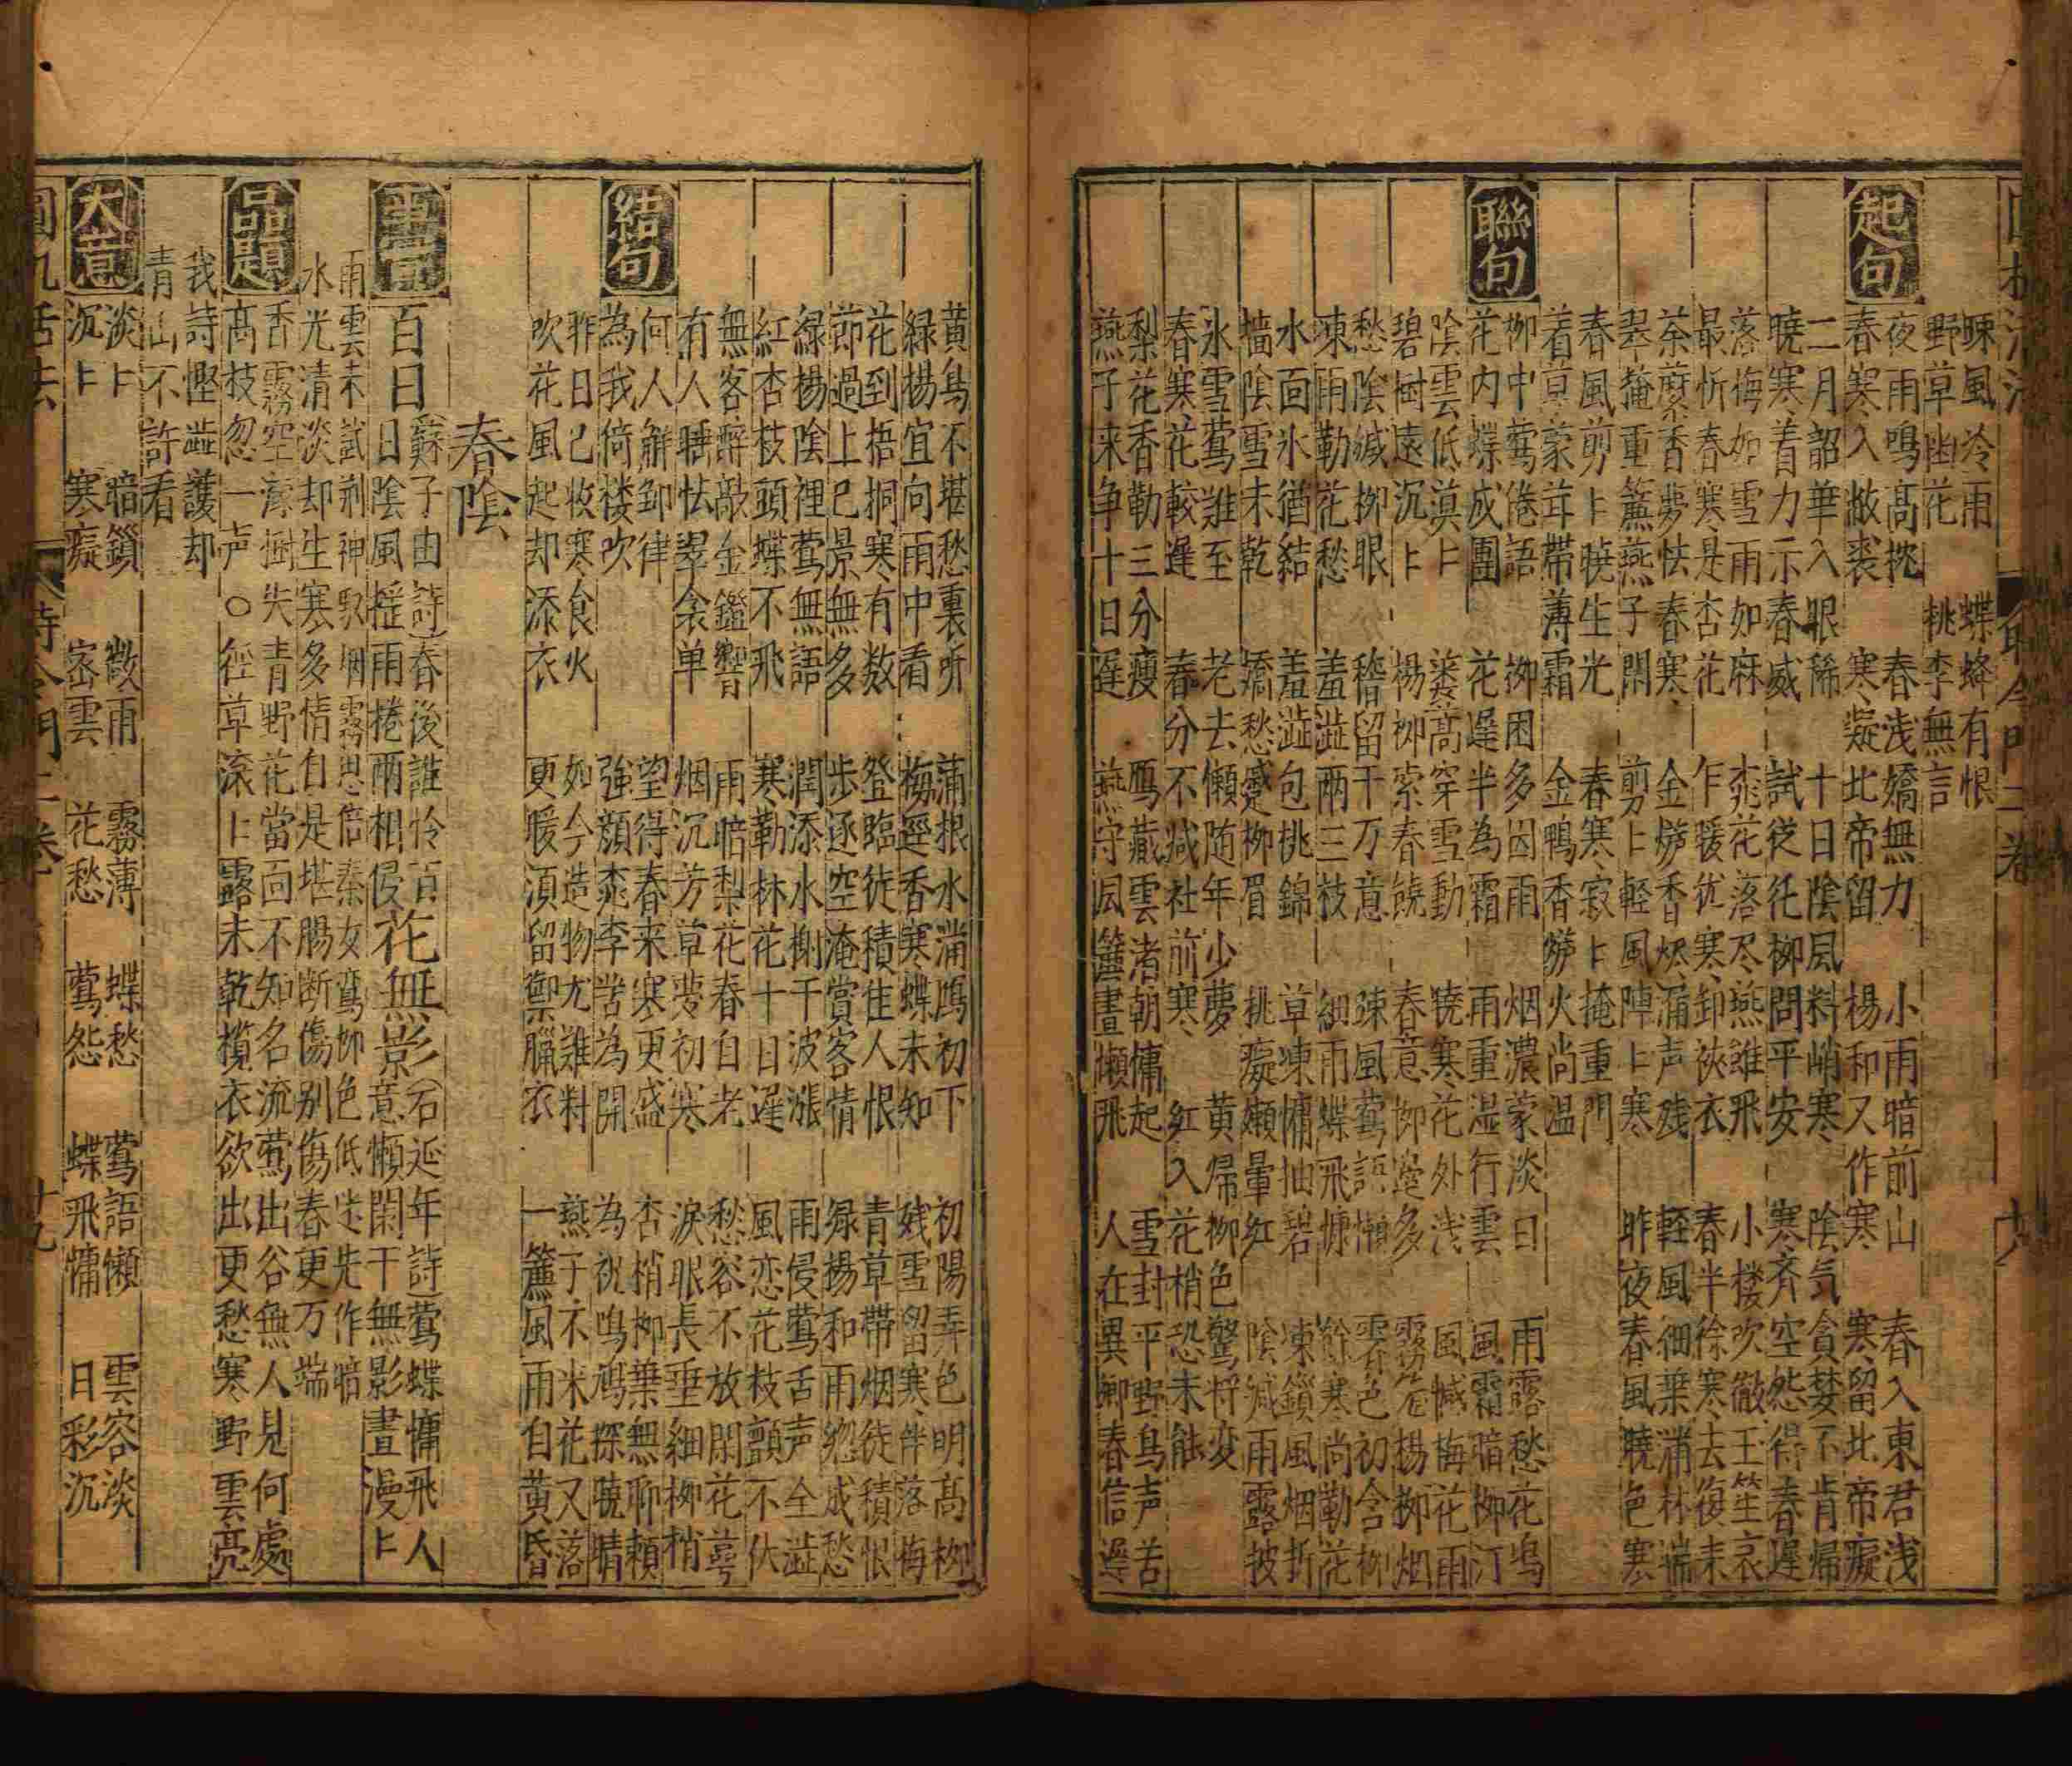 踈風冷雨 蝶蜂有恨
野草幽花 桃李無言
起句
夜雨鳴高枕 春浅嬌無力 小雨暗前山 春入東君浅
春寒入敝裘 寒凝北帝留 楊和又作寒 寒留北帝凝
二月韶華入眼稀 十日陰風料峭寒 陰気貪婪不肯帰
暁寒着力示春威 試従花柳問平安 寒斉空怨得春遅
落梅如雪雨如麻 桃花落尽燕雖飛 小楼吹徹玉笙哀
最忻春寒是杏花 乍暖犹寒卸裌衣 春半徐寒去復来
荼蘼香夢怯春寒 金爐香烬漏声残 軽風細葉満林端
翠掩重簾燕子閑 剪卜軽風陣卜寒 昨夜春風暁色寒
春風剪卜暁生光 春寒寂卜掩重門
着草蒙茸帯薄霜 金鴨香爐火尚温
聯句
柳中鶯倦語 柳困多因雨 烟濃蒙淡日 雨露愁花塢
花内蝶成團 花遅半為霜 雨重湿行雲 風霜暗柳汀
陰雲低漠卜 蒌蒿穿雪動 暁寒花外浅 風憾梅花雨
碧樹遠沉卜 楊柳索春饒 春意柳邉多 霧卷楊柳烟
愁陰緘柳眼 稽留千万意 踈風鶯語懶 雲色初含柳
凍雨勒花愁 羞澁両三枝 細雨蝶飛慵 餘寒尚勒花
水面氷猶結 羞澁包桃錦 草凍慵抽碧 凍鎖風烟折
墻陰雪未乾 嬌愁蹙柳眉 桃凝嬾暈紅 陰緘雨露披
氷雪鶯難至 老去懶随年少夢 黄帰柳色驚将変
春寒花較遅 春分不减社前寒 紅入花梢恐未能
梨花香勒三分瘦 鴈蔵雲渚朝慵起 雪封平野鳥声苦
燕子来争十日遅 燕守凨簷晝懶飛 人在異郷春信遅
黄鳥不堪愁裏听 蒲根水満鴈初下 初陽弄色明高柳
緑楊宜向雨中看 梅逕香寒蝶未知 残雪留寒伴落梅
花到梧桐寒有数 登臨徒積佳人恨 青草帯烟徒積恨
節過上已景無多 歩逐空淹賞客情 緑楊和雨緫成愁
緑楊陰裡鶯無語 潤添水榭千波漲 雨侵鶯舌声全澁
紅杏枝頭蝶不飛 寒勒林花十日遅 風恋花枝顫不休
無客辭敲金鐙響 雨暗梨花春自老 愁容不放閑花萼
有人睡怯翠衾単 烟沉芳草夢初寒 淚眼長垂細柳梢
結句
何人解卸律 望得春来寒更盛 杏梢柳葉無聊頼
為我倚楼吹 強顔桃李苦為開 為祝鳴鳩探暁晴
昨日已收寒食火 如今造物尤難料 燕子不来花又落
吹花風起却添衣 更暖湏留禦臘衣 一簾風雨自黄昏
春陰
百日蘇子由詩春後誰怜百日日陰風揺雨捲両相侵
花無影石延年詩鶯蝶慵飛人意懶閑干無影晝漫卜
雨雲未試剃神馭烟霧思倍秦女鸞柳色低迷先作暗
水光清淡却生寒多情自是堪腸断傷别傷春更万端
品題
香霧空濛樹失青野花當面不知名流鶯出谷無人見何處
高枝忽一声○径草滚卜露未乾攬衣欲出更愁寒野雲亮
我詩慳澁護却
青山不許看
大意
淡卜 暗鎖 微雨 霧薄 蝶愁 鶯語懶 雲容淡
沉卜 寒凝 密雲 花愁 鶯怨 蝶飛慵 日彩沉